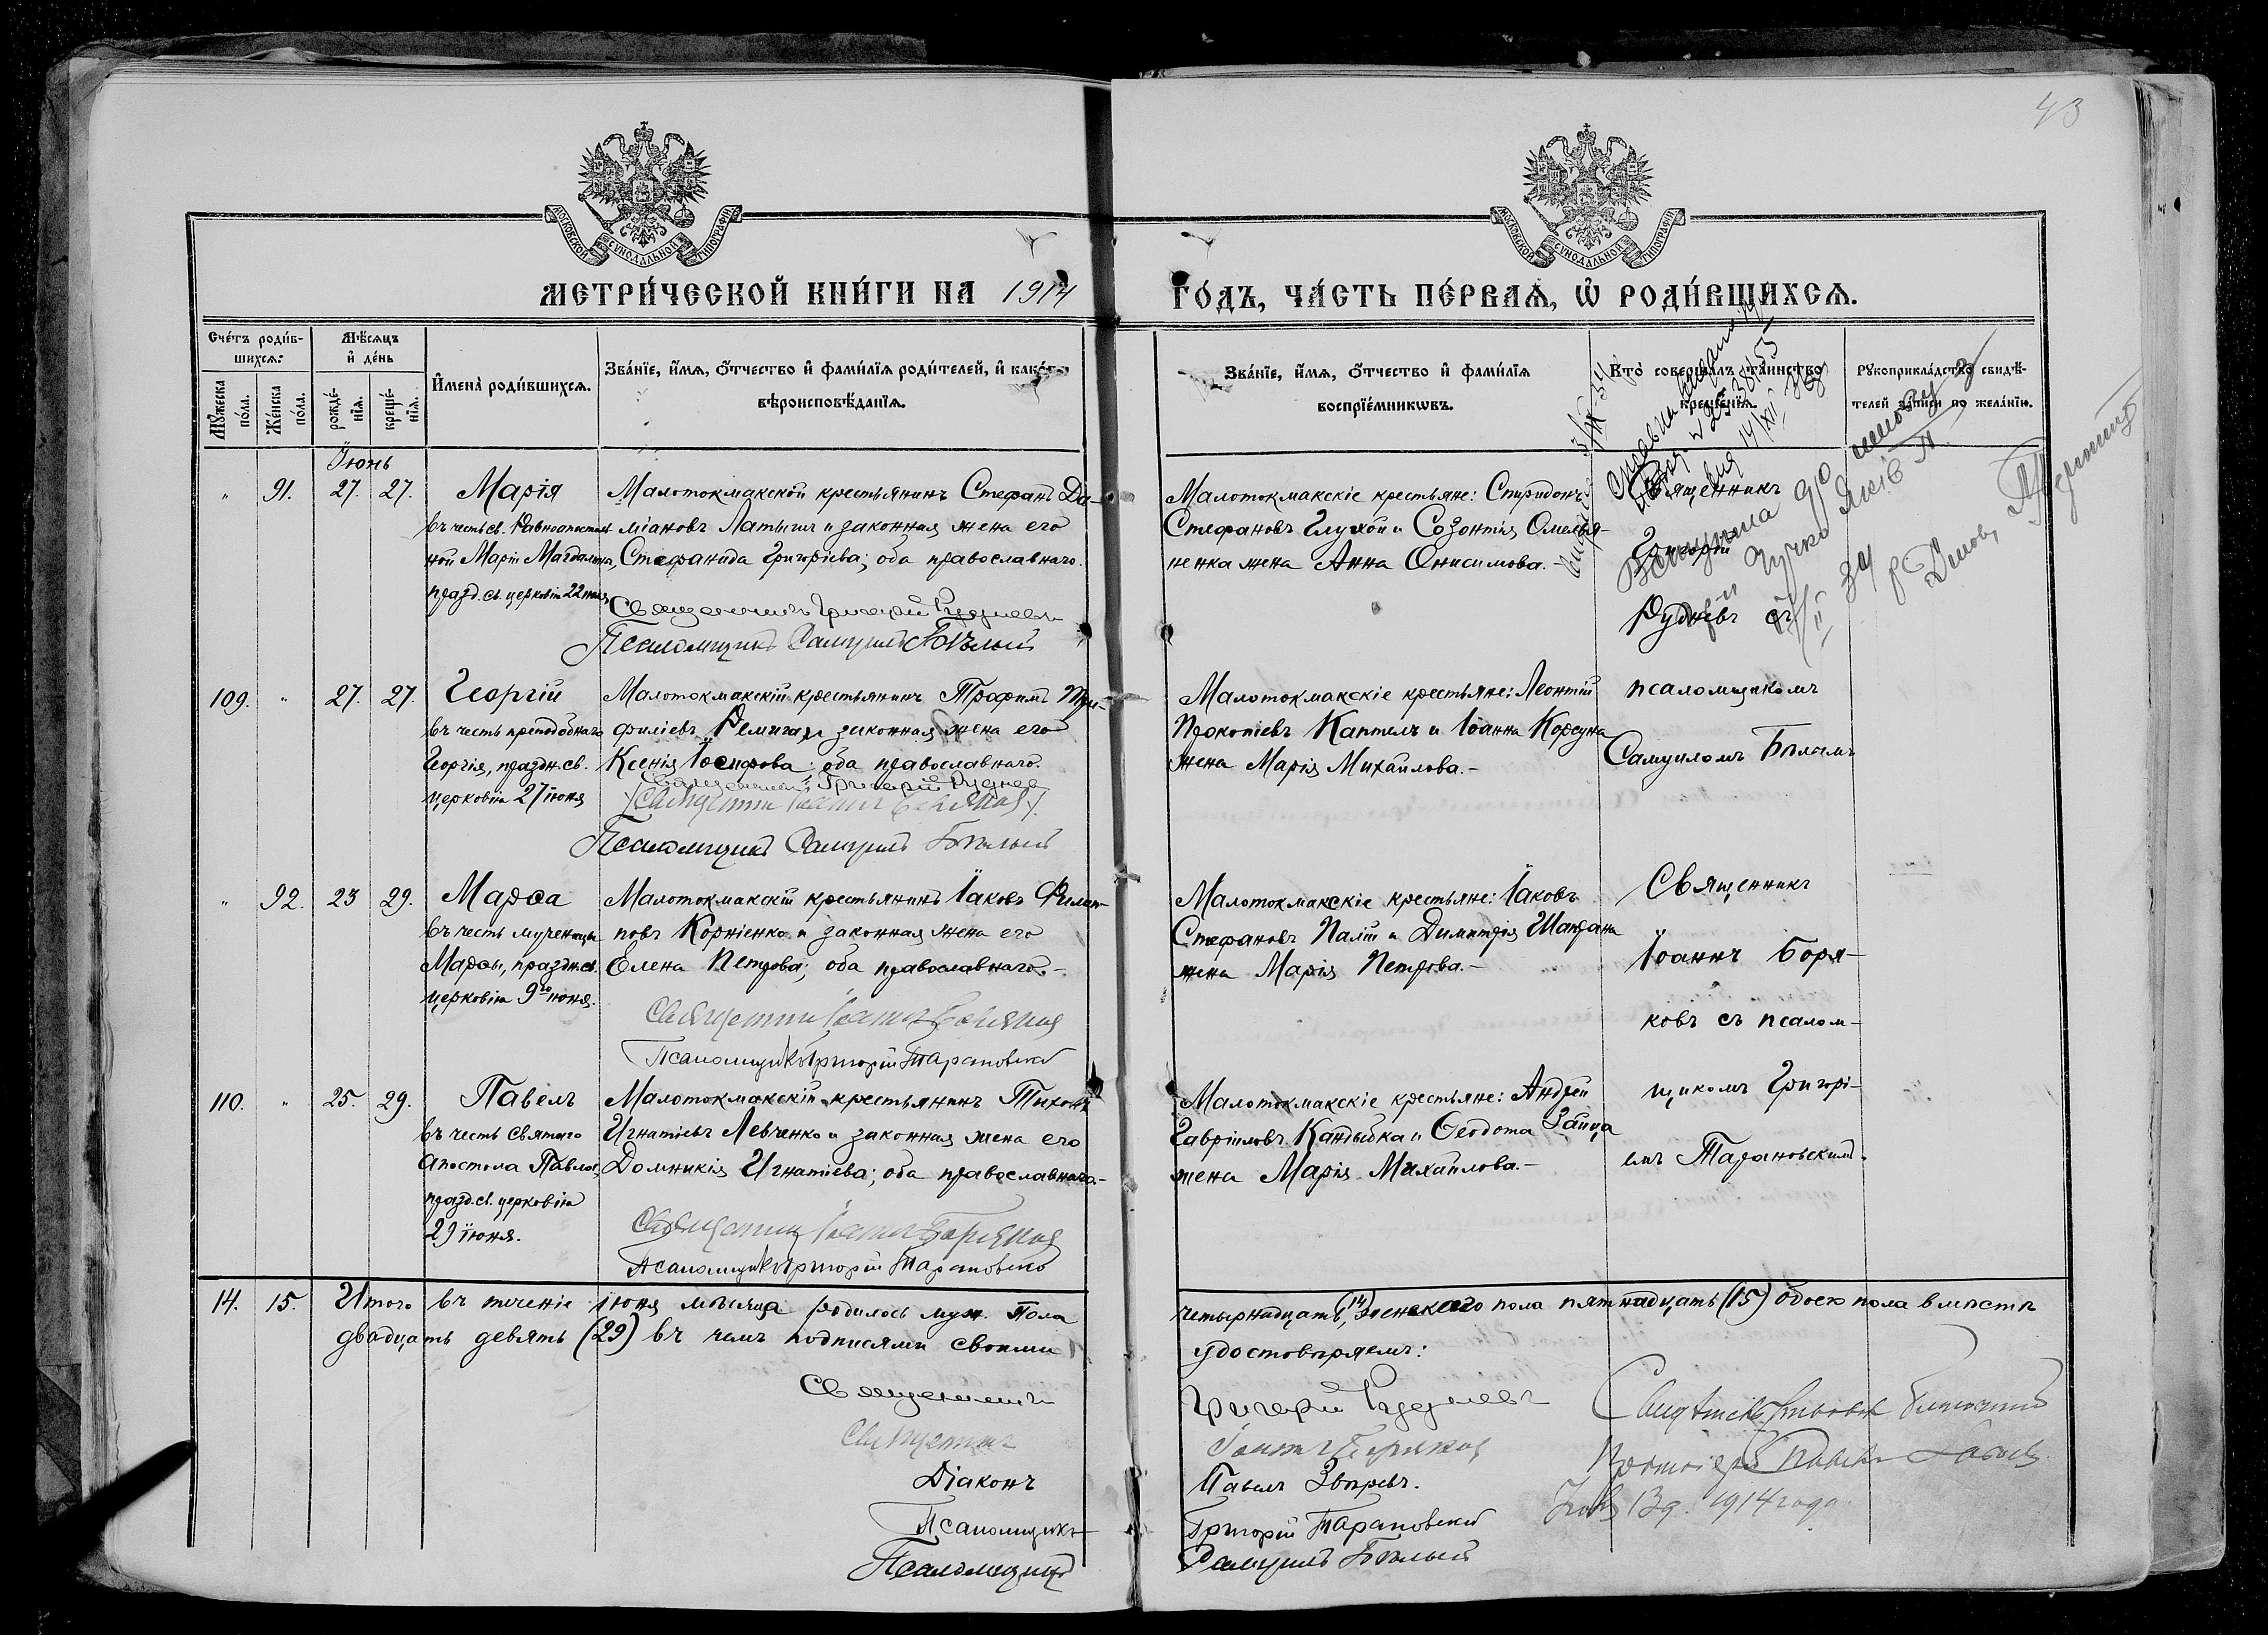 43
МОСКОВСКОЙ СѴНОДАЛЬНОЙ ТИПОГРАФІИ
МОСКОВСКОЙ СѴНОДАЛЬНОЙ ТИПОГРАФІИ
МЕТРИ́ЧЕСКОЙ КНИ́ГИ НА 1914 ГО́ДЪ, ЧА́СТЬ ПЕ́РВАѦ, Ѡ҆ РОДИ́ВШИХСѦ.
Сче́тъ роди́в-
шихсѧ:
Мꙋ́жеска по́ла.
Же́нска по́ла.
Мѣ́сѧцъ
и҆ де́нь
рожде́-
нїѧ.
креще́-
нїѧ.
И҆мена̀ роди́вшихсѧ.
Зва́нїе, и҆́мѧ, ѻ҆́тчество и҆ фами́лїѧ роди́телей, и҆ како́гѡ
вѣроисповѣ́данїѧ.
Зва́нїе, и҆́мѧ, ѻ҆́тчество и҆ фами́лїѧ
воспрїе́мникѡвъ.
Кто̀ соверша́лъ та́инство
креще́нїѧ.
Рꙋкоприкла́дство свидѣ́-
телей за́писи по жела́нїю.
Іюнь
" 91. 27. 27. Марія
въ честь св. Равноапостоль
ной Маріи Магдалины,
празд. св. церковію 22 іюля
Малотокмакской крестьянинъ Стефанъ Да-
міановъ Латышъ и законная жена его
Стефанида Григоріева; оба православнаго.
Священникъ Григорій Рудневъ
Псаломщикъ Самуилъ Бѣлый
Малотокмакскіе крестьяне: Спиридонъ
Стефановъ Глухой и Созонтія Омелья-
ненка жена Анна Онисимова.-
Священникъ
Григорій
Рудневъ съ
109. " 27. 27. Георгій
въ честь преподобнаго
Георгія, праздн. св.
церковію 27 іюня
Малотокмакскій крестьянинъ Трофимъ Три-
филіевъ Ремига и законная жена его
Ксенія Іосифова; оба православнаго.
Священникъ Григорій Рудневъ
Псаломщикъ Самуилъ Бѣлый
Малотокмакскіе крестьяне: Леонтій
Прокопіевъ Каптелъ и Іоанна Корсуна
жена Марія Михайлова.-
псаломщикомъ
Самуиломъ Бѣлымъ
" 92. 23 29. Марѳа
въ честь мученицы
Марѳы, праздн. св.
церковію 9го іюня.
Малотокмакскій крестьянинъ Іаковъ Филип-
повъ Корніенко и законная жена его
Елена Петрова; оба православнаго.-
Священникъ Іоаннъ Боряковъ
Псаломщикъ Григорій Тарановскій
Малотокмакскіе крестьяне: Іаковъ
Стефановъ Палій и Димитрія Шандана
жена Марія Петрова.-
Священникъ
Іоаннъ Боря-
ковъ съ псалом-
110. " 25. 29. Павелъ
въ честь святаго
Апостола Павла,
празд. св. церковію
29 іюня.
Малотокмакскій крестьянинъ Тихонъ
Игнатіевъ Левченко и законная жена его
Домникія Игнатіева; оба православнаго.-
Священникъ Іоаннъ Боряковъ
Псаломщикъ Григорій Тарановскій
Малотокмакскіе крестьяне: Андрей
Гавріиловъ Кандыбка и Ѳеодота Зайца
жена Марія Михайлова.-
щикомъ Григорі-
емъ Тарановскимъ.
14. 15. Итого въ теченіе іюня мѣсяца родилось муж. пола четырнадцать (14), женскаго пола пятнадцать (15) обоего пола вмѣстѣ
двадцать девять (29) въ чемъ подписями своими удостовѣряемъ:
Священникъ Григорій Рудневъ
Священникъ Іоаннъ Боряковъ
Діаконъ Павелъ Звѣревъ.
Псаломщикъ Григорій Тарановскій
Псаломщикъ Самуилъ Бѣлый
13 д. 1914 года